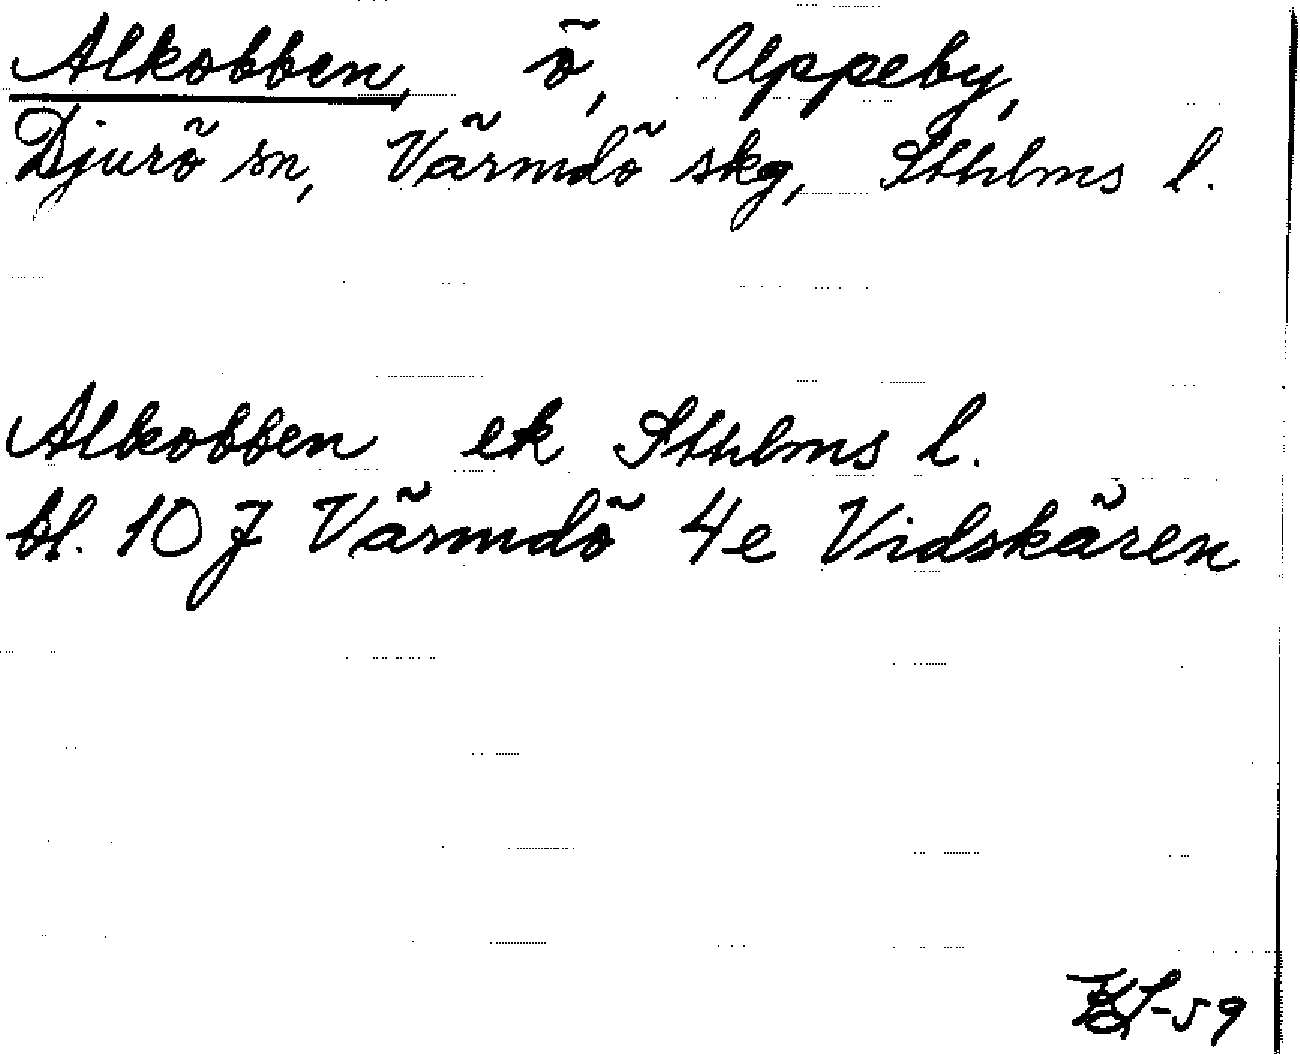 Alkobben, ö, Uppeby,
Djurö sn, Värmdö skg, Sthlms l.
Alkobben ek Sthlms l.
bl. 107 Värmdö 4e Vidskären
-59